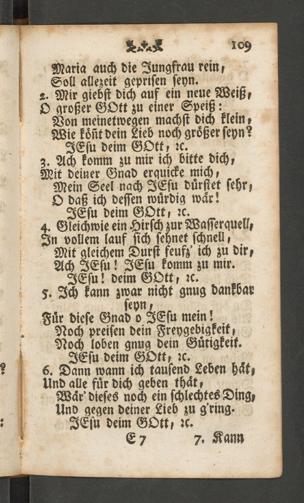 109
Maria auch die Jungfrau rein,
Soll allezeit geprisen seyn.
2. Mir giebst dich auf ein neue Weiß,
O großer GOtt zu einer Speiß:
Von meinetwegen machst dich klein,
Wie köñt dein Lieb noch größer seyn?
JEsu deim GOtt, ꝛc.
3. Ach komm zu mir ich bitte dich,
Mit deiner Gnad erquicke mich,
Mein Seel nach JEsu dürstet sehr,
O daß ich dessen würdig wär!
JEsu deim GOtt, ꝛc.
4. Gleichwie ein Hirsch zur Wasserquell,
In vollem lauf sich sehnet schnell,
Mit gleichem Durst seufz' ich zu dir,
Ach JEsu! JEsu komm zu mir.
JEsu! deim GOtt, ꝛc.
5. Ich kann zwar nicht gnug dankbar
seyn,
Für diese Gnad o JEsu mein!
Noch preisen dein Freygebigkeit,
Noch loben gnug dein Gütigkeit.
JEsu deim GOtt, ꝛc.
6. Dann wann ich tausend Leben hät,
Und alle für dich geben thät,
Wär' dieses noch ein schlechtes Ding,
Und gegen deiner Lieb zu g'ring.
JEsu deim GOtt, ꝛc.
E 7 7. Kann